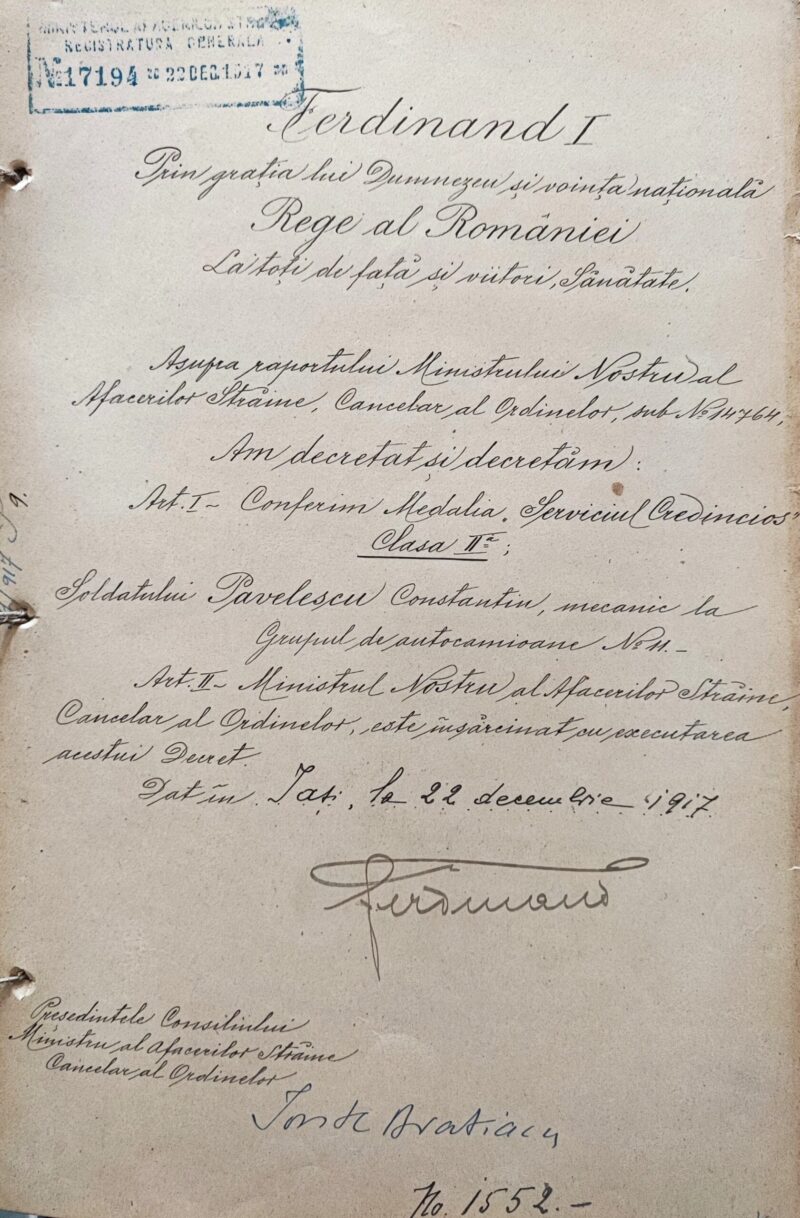 MINISTERUL AFACERILOR STRĂINE
REGISTRATURA GENERALA
№ 17194 * 22 DEC. 1917 *
Ferdinand I
Prin grația lui Dumnezeu și voința națională
Rege al României
La toți de față și viitori, Sănătate.
Asupra raportului Ministrului Nostru al
Afacerilor Străine, Cancelar al Ordinelor, sub № 14764,
Am decretat și decretăm:
Art. I – Conferim Medalia „Serviciul Credincios”
Clasa IIª;
Soldatului Pavelescu Constantin, mecanic la
Grupul de autocamioane № 11.–
Art. II – Ministrul Nostru al Afacerilor Străine,
Cancelar al Ordinelor, este însărcinat cu executarea
acestui Decret.
Dat în Iași, la 22 decembrie 1917
Ferdinand
Președintele Consiliului
Ministru al Afacerilor Străine
Cancelar al Ordinelor
Bratianu
No. 1552.–